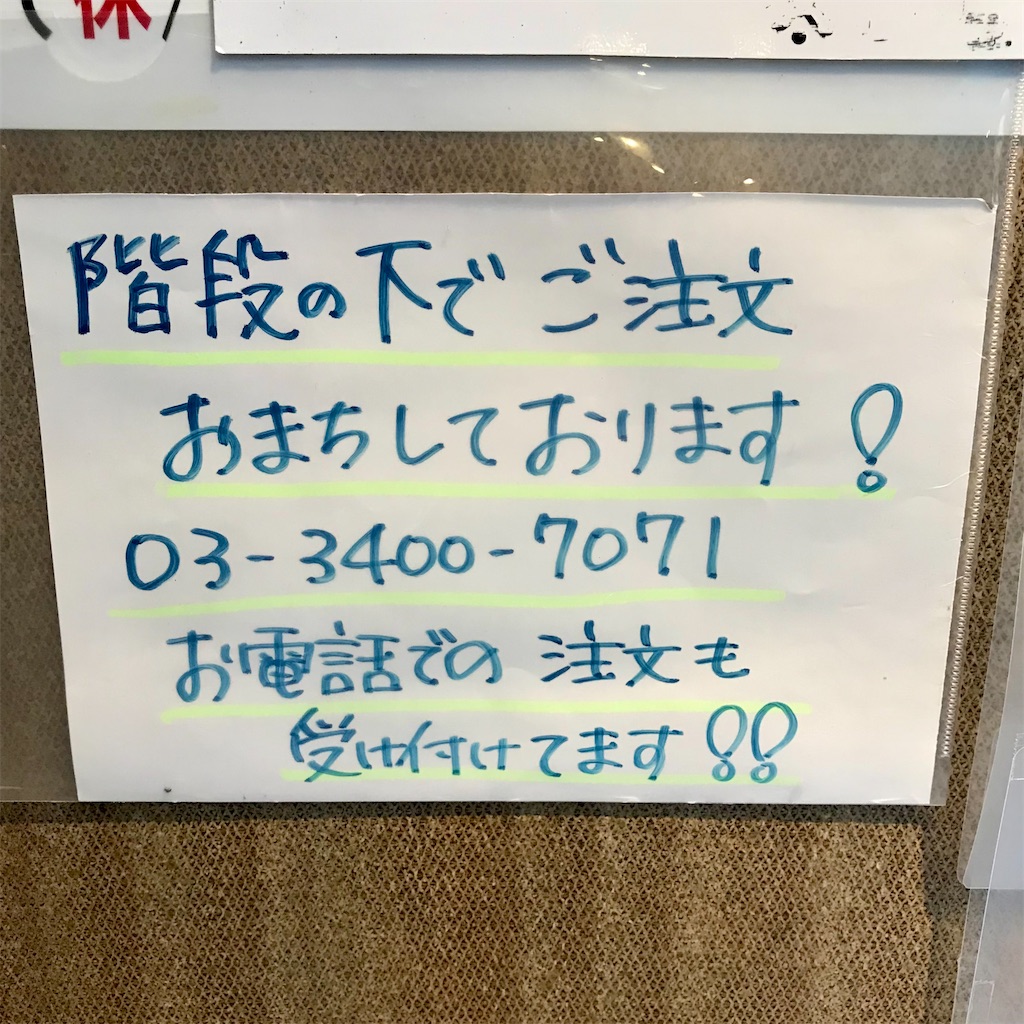 休
階段の下でご注文
おまちしております！
03-3400-7071
お電話での注文も
受け付けてます！！